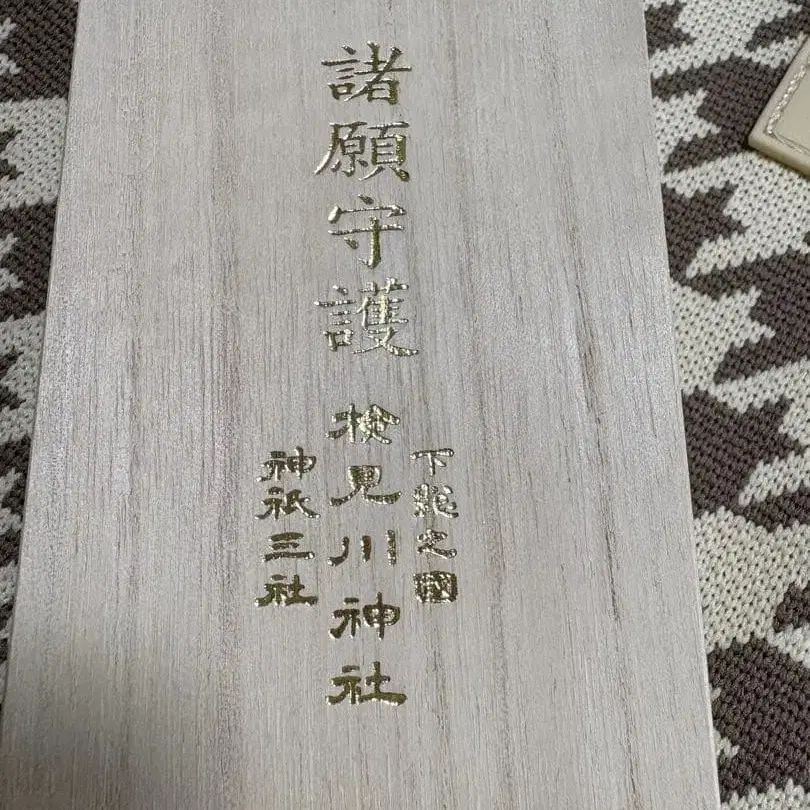 諸願守護
下総之國
検見川神社
神祇三社